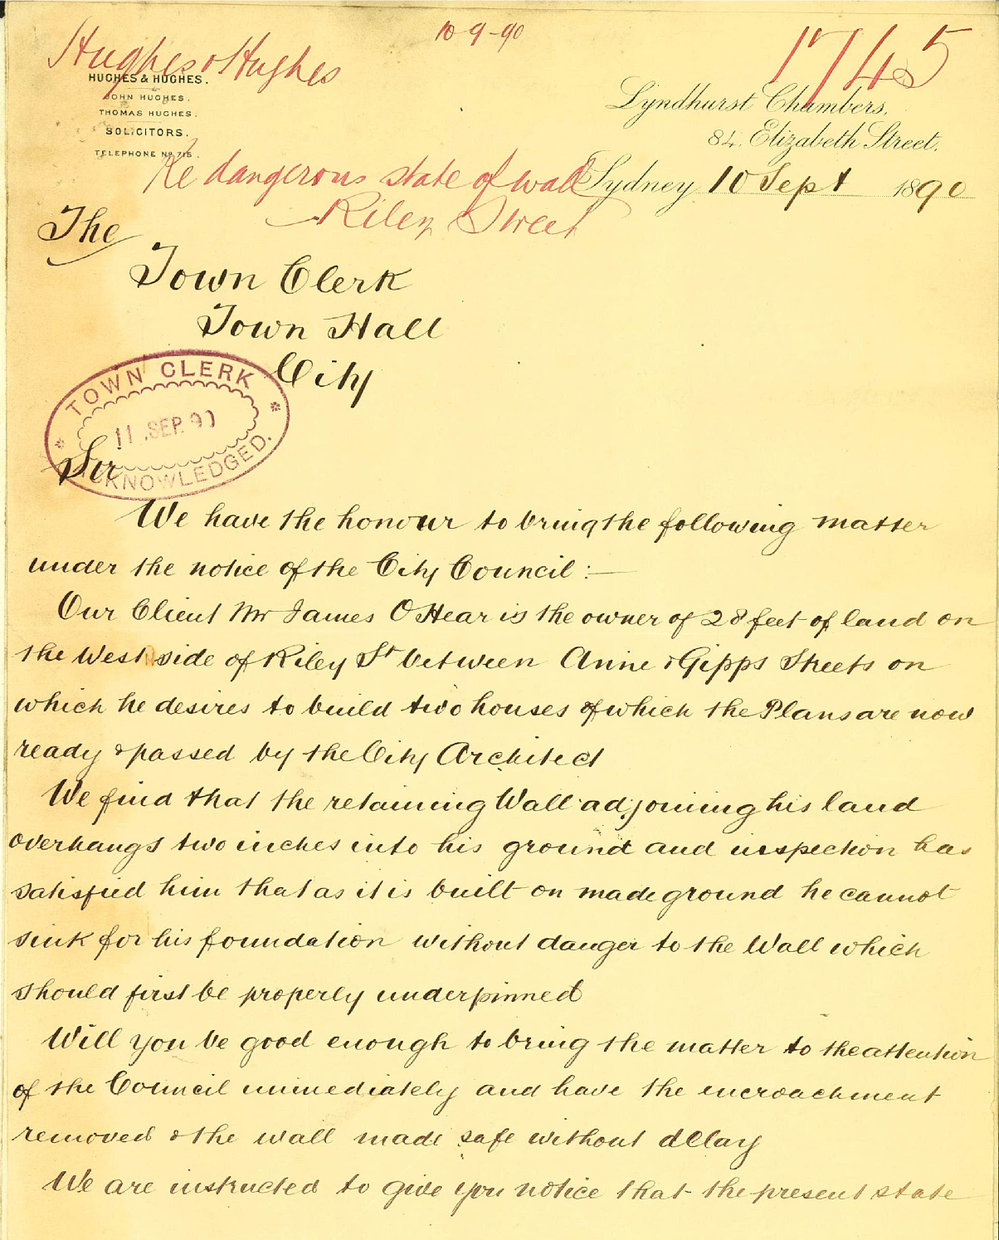 10-9-90
1745
Hughes & Hughes
HUGHES & HUGHES.
JOHN HUGHES.
THOMAS HUGHES.
SOLICITORS.
TELEPHONE No 715.
Lyndhurst Chambers,
84, Elizabeth Street,
Re dangerous state of wall
Riley Street
Sydney 10 Sept 1890
The
Town Clerk
Town Hall
City
TOWN CLERK
11 SEP. 90
ACKNOWLEDGED.
Sir
We have the honour to bring the following matter
under the notice of the City Council :—
Our Client Mr James O'Hear is the owner of 28 feet of land on
the West side of Riley St between Anne & Gipps Streets on
which he desires to build two houses of which the Plans are now
ready & passed by the City Architect
We find that the retaining Wall adjoining his land
overhangs two inches into his ground and inspection has
satisfied him that as it is built on made ground he cannot
sink for his foundation without danger to the Wall which
should first be properly underpinned
Will you be good enough to bring the matter to the attention
of the Council immediately and have the encroachment
removed & the wall made safe without delay
We are instructed to give you notice that the present state